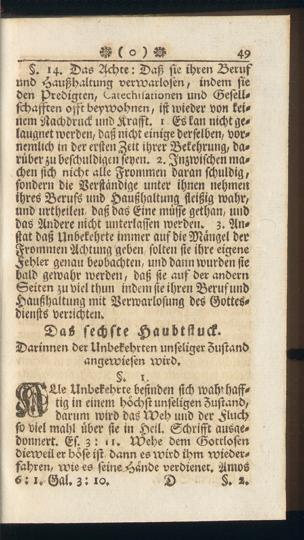 ❋ ( o ) ❋ 49
§. 14. Das Achte: Daß sie ihren Beruf
und Haußhaltung verwarlosen, indem sie
den Predigten, Catechisationen und Gesell-
schafften offt beywohnen, ist wieder von kei-
nem Nachdruck und Krafft. 1 Es kan nicht ge-
laugnet werden, daß nicht einige derselben, vor-
nemlich in der ersten Zeit ihrer Bekehrung, da-
rüber zu beschuldigen seyen. 2. Inzwischen ma-
chen sich nicht alle Frommen daran schuldig,
sondern die Verständige unter ihnen nehmen
ihres Berufs und Haußhaltung fleißig wahr,
und urtheilen daß das Eine müsse gethan, und
das Andere nicht unterlassen werden. 3. An-
stat daß Unbekehrte immer auf die Mängel der
Frommen Achtung geben, solten sie ihre eigene
Fehler genau beobachten, und dann wurden sie
bald gewahr werden, daß sie auf der andern
Seiten zu viel thun indem sie ihren Beruf und
Haußhaltung mit Verwarlosung des Gottes-
diensts verrichten.
Das sechste Haubtstuck.
Darinnen der Unbekehrten unseliger Zustand
angewiesen wird.
§. 1.
ALle Unbekehrte befinden sich wahrhaff-
tig in einem höchst unseligen Zustand,
darum wird das Weh und der Fluch
so viel mahl über sie in Heil. Schrifft ausge-
donnert. Es. 3: 11. Wehe dem Gottlosen
dieweil er böse ist dann es wird ihm wieder-
fahren, wie es seine Hände verdienet. Amos
6: 1. Gal. 3: 10. D §. 2.